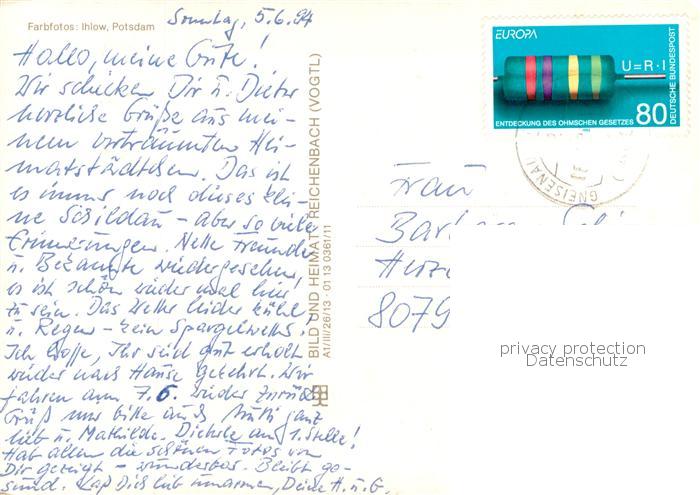 Farbfotos: Ihlow, Potsdam
Sonntag, 5.6.94
Hallo, meine Gute!
Wir schicken Dir u. Dieter
herzliche Grüße aus mei-
nem verträumten Hei-
matstädtchen. Das ist
es immer noch dieses klei-
ne Schildau – aber so viele
Erinnerungen. Nette Freunde
u. Bekannte wiedergesehen,
es ist schön wieder mal hier
zu sein. Das Wetter leider kühl
u. Regen – kein Spargelwetter!
Ich hoffe, Ihr seid gut erholt
wieder nach Hause gekehrt. Wir
fahren am 7.6. wieder zurück
Grüß uns bitte auch ganz
lieb u. Mathilde. an 1. Stelle!
Hab allen die schönen Fotos von
Dir gezeigt – wunderbar. Bleibt ge-
sund. Laß Dich lieb umarmen, Deine H. u. G.
BILD UND HEIMAT REICHENBACH (VOGTL)
A1/III/26/13 · 01 13 0361/11
EUROPA
U=R·I
DEUTSCHE BUNDESPOST
ENTDECKUNG DES OHMSCHEN GESETZES 80
GNEISENAU
Frau
8079
privacy protection
Datenschutz